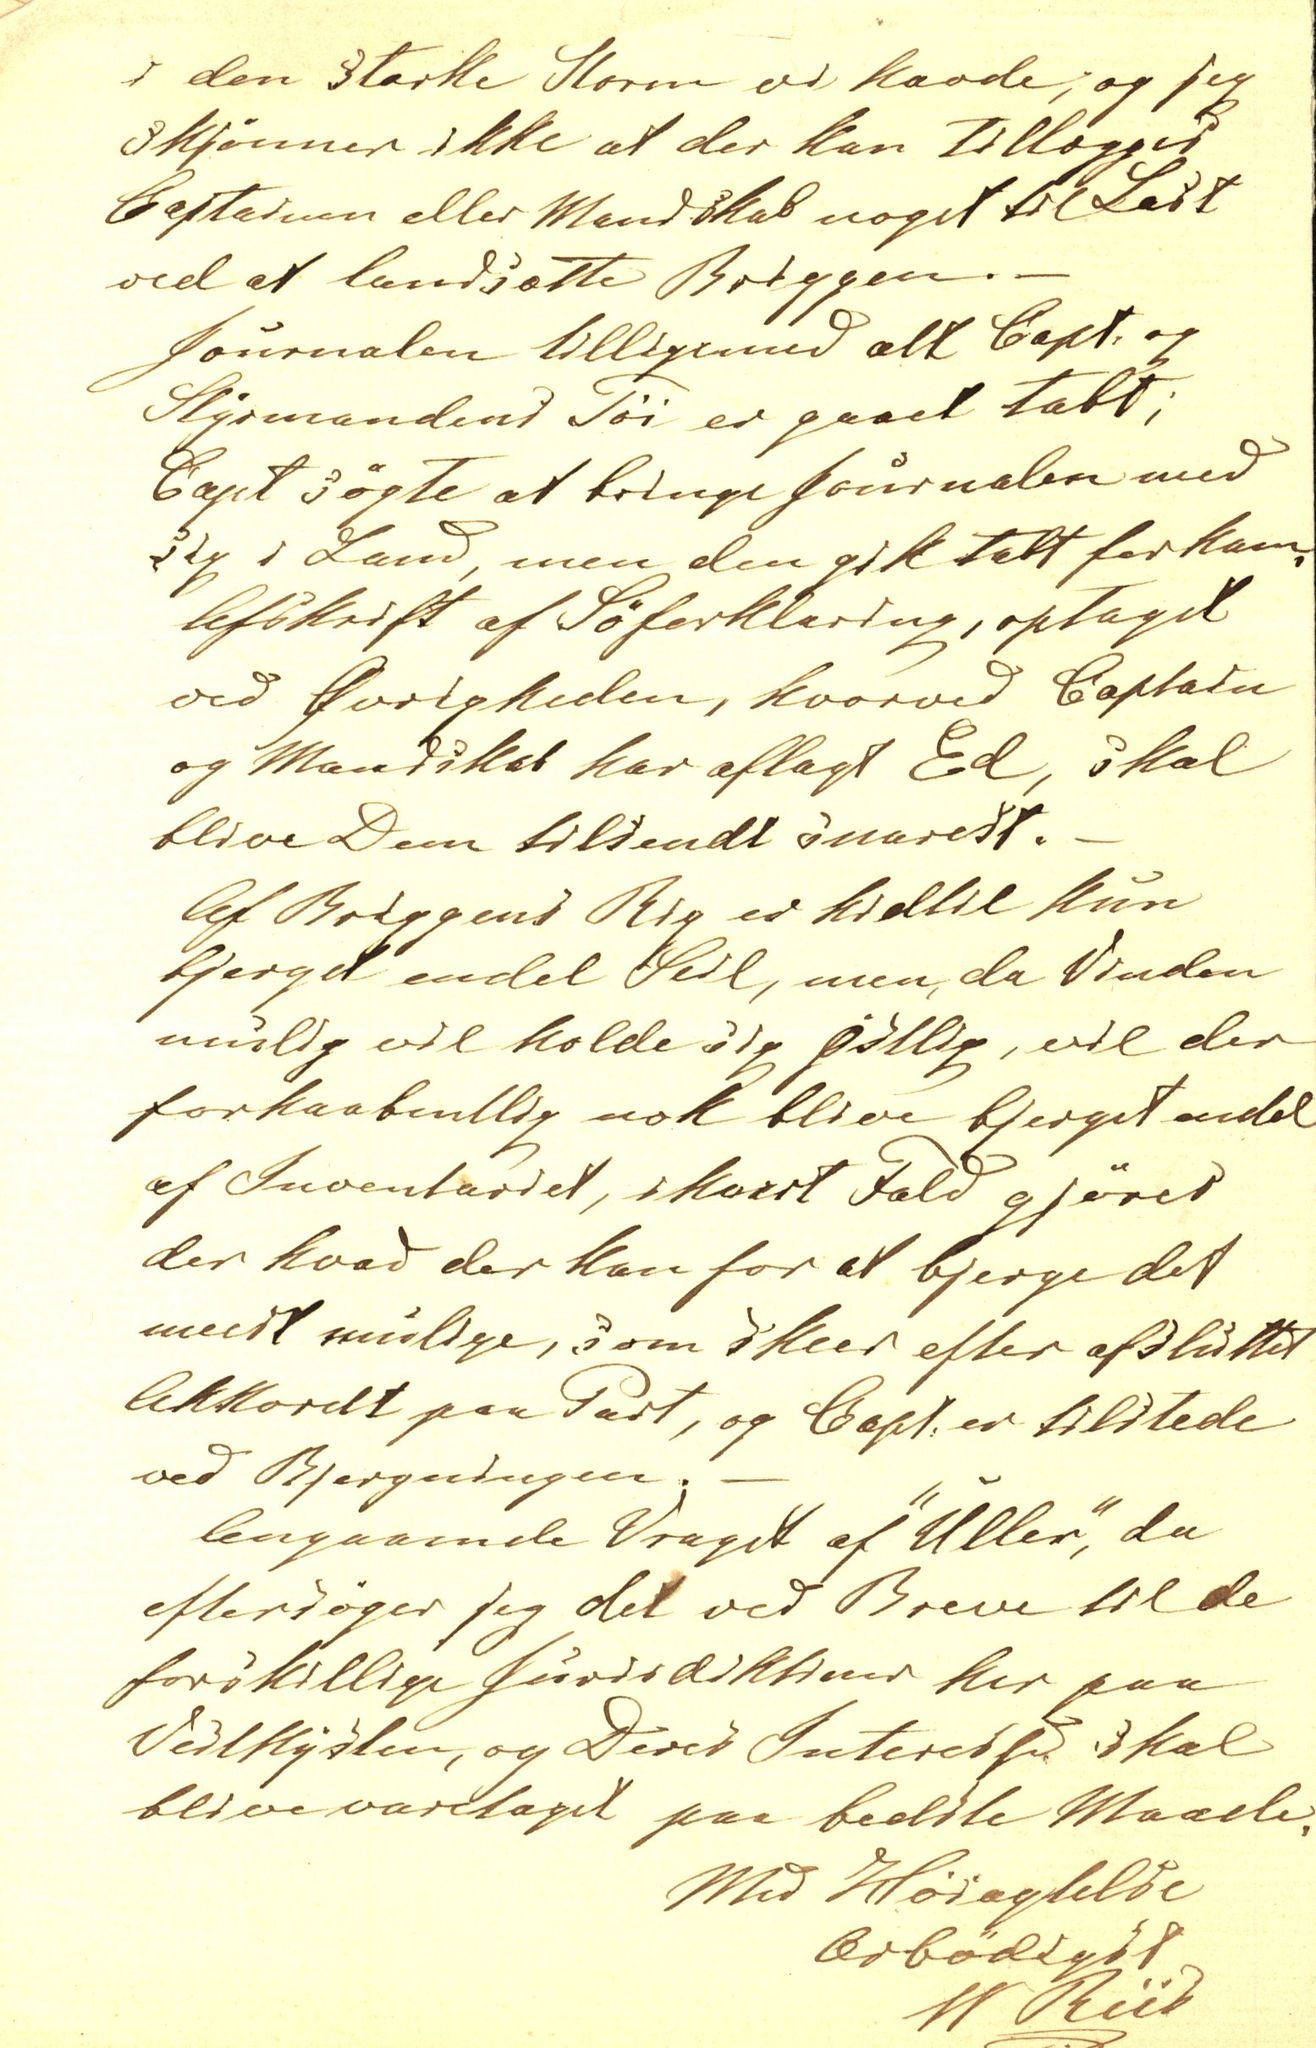 i den stærke Storm vi havde, og jeg
skjönner ikke at der kan tillægges
Captainen eller Mandskab noget til Last
ved at landsætte Briggen. —
Journalen tilligemed alt Capt. og
Styrmandens Töi er gaaet tabt;
Capt sögte at bringe Journalen med
sig i Land, men den gik tabt for ham.
Afskrift af Söforklaring, optaget
ved Øvrigheden, hvorved Captain
og Mandskab har aflagt Ed, skal
blive Dem tilsendt snarest. —
Af Briggens Rig er hidtil kun
bjerget endel Seil, men, da Vinden
muslig vil holde sig östlig, vil der
forhaabentlig nok blive bjerget endel
af Inventariet, i hvert Fald gjöres
der hvad der kan for at bjerge det
meest muslige, som skeer efter afsluttet
Akkordt paa Part, og Capt. er tilstede
ved Bjergningen. —
Angaaende Vraget af "Uller", da
eftersöger jeg det ved Breve til de
forskillige Jurisdiktiner her paa
Vestkysten, og Deres Interesse skal
blive varetaget paa bedste Maade.
Med Höiagtelse
Ærbödigst